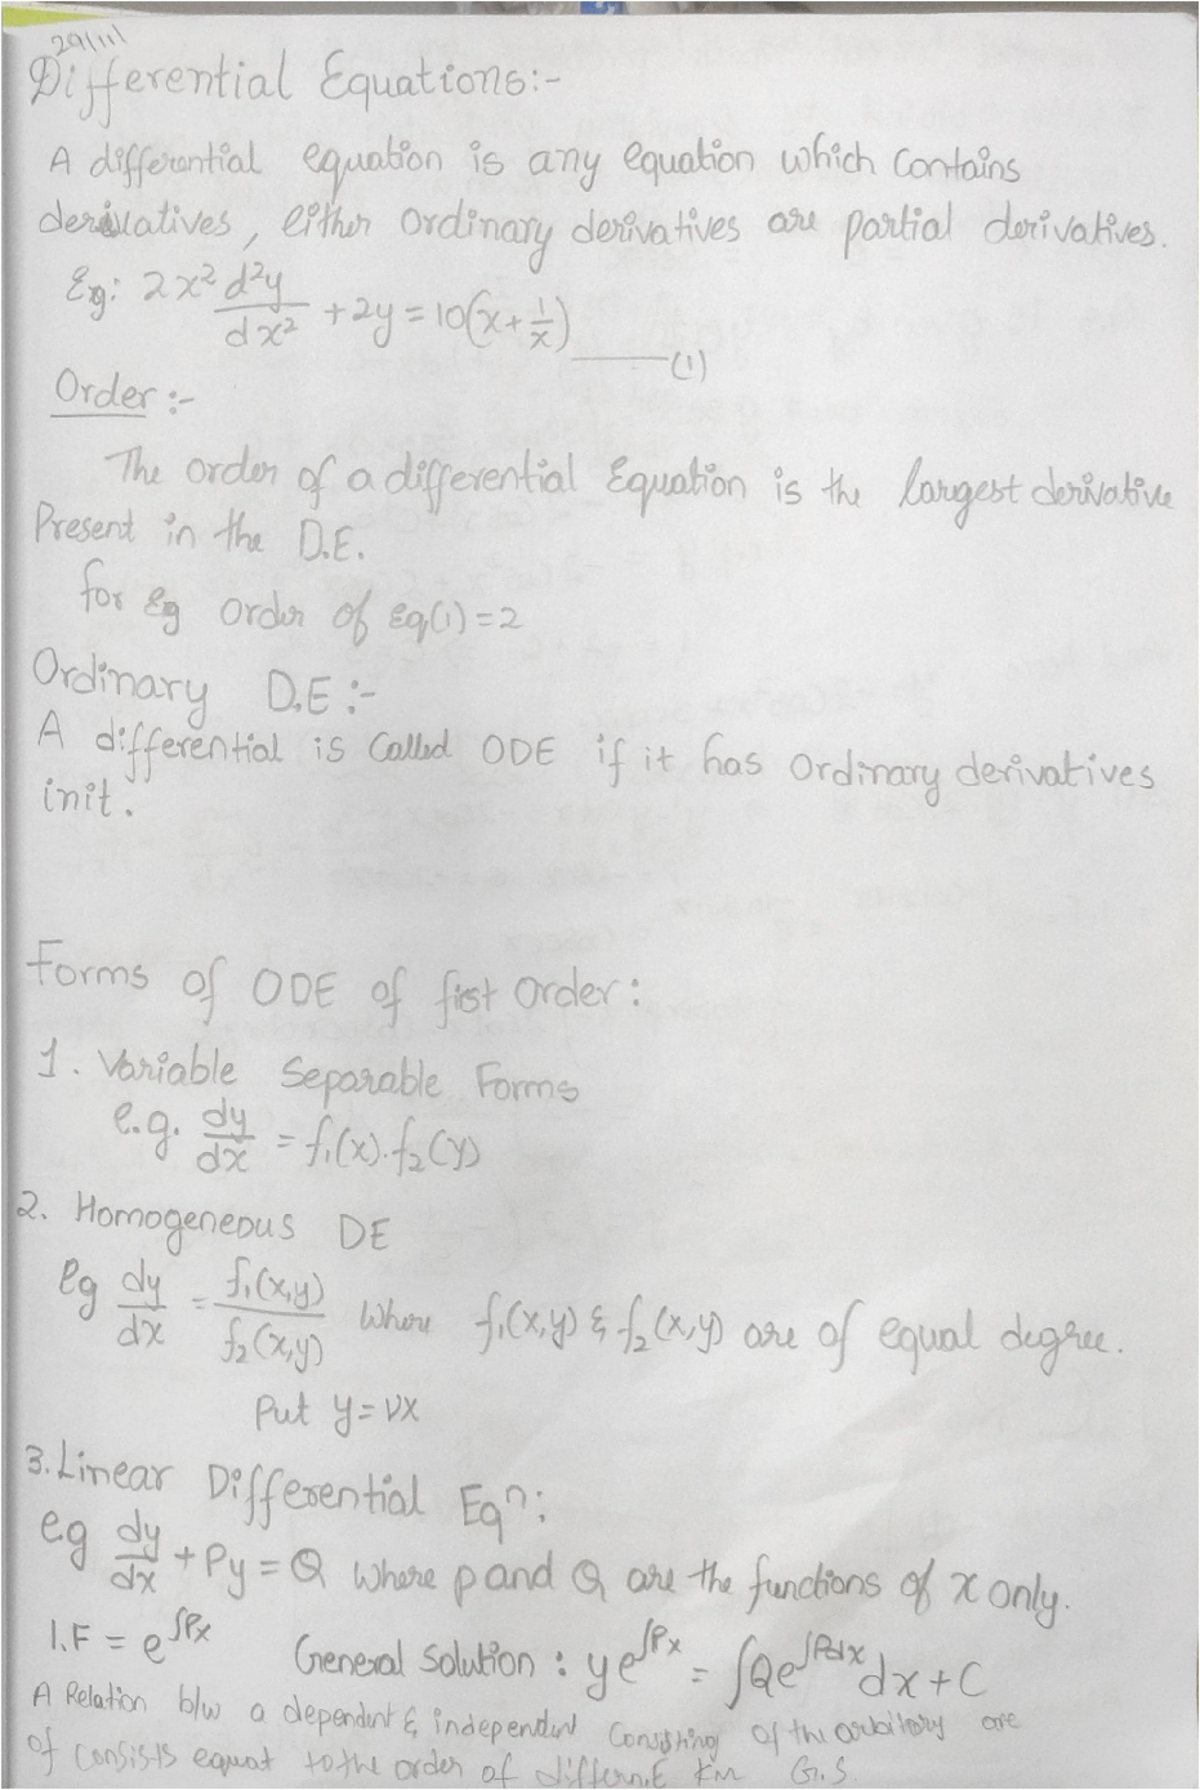 29/11/
Differential Equations:-
A differential equation is any equation which contains
derivatives, either ordinary derivatives are partial derivatives.
Eg: 2x² d²y/dx² + 2y = 10(x + 1/x) ——(1)
Order :-
The order of a differential Equation is the largest derivative
Present in the D.E.
for Eg order of Eq(1) = 2
Ordinary D.E :-
A differential is Called ODE if it has Ordinary derivatives
init.
Forms of ODE of first Order :
1. Variable Separable Forms
e.g. dy/dx = f₁(x).f₂(y)
2. Homogeneous DE
eg dy/dx = f₁(x,y)/f₂(x,y) Where f₁(x,y) & f₂(x,y) are of equal degree.
Put y = vx
3. Linear Differential Eqⁿ:
eg dy/dx + Py = Q where p and Q are the functions of x only.
I.F = e^∫Px General Solution : y e^∫Px = ∫Qe^∫Pdx dx + C
A Relation b/w a dependent & independent Consisting of the arbitory are
of consists equat to the order of differn.E Km G.S.